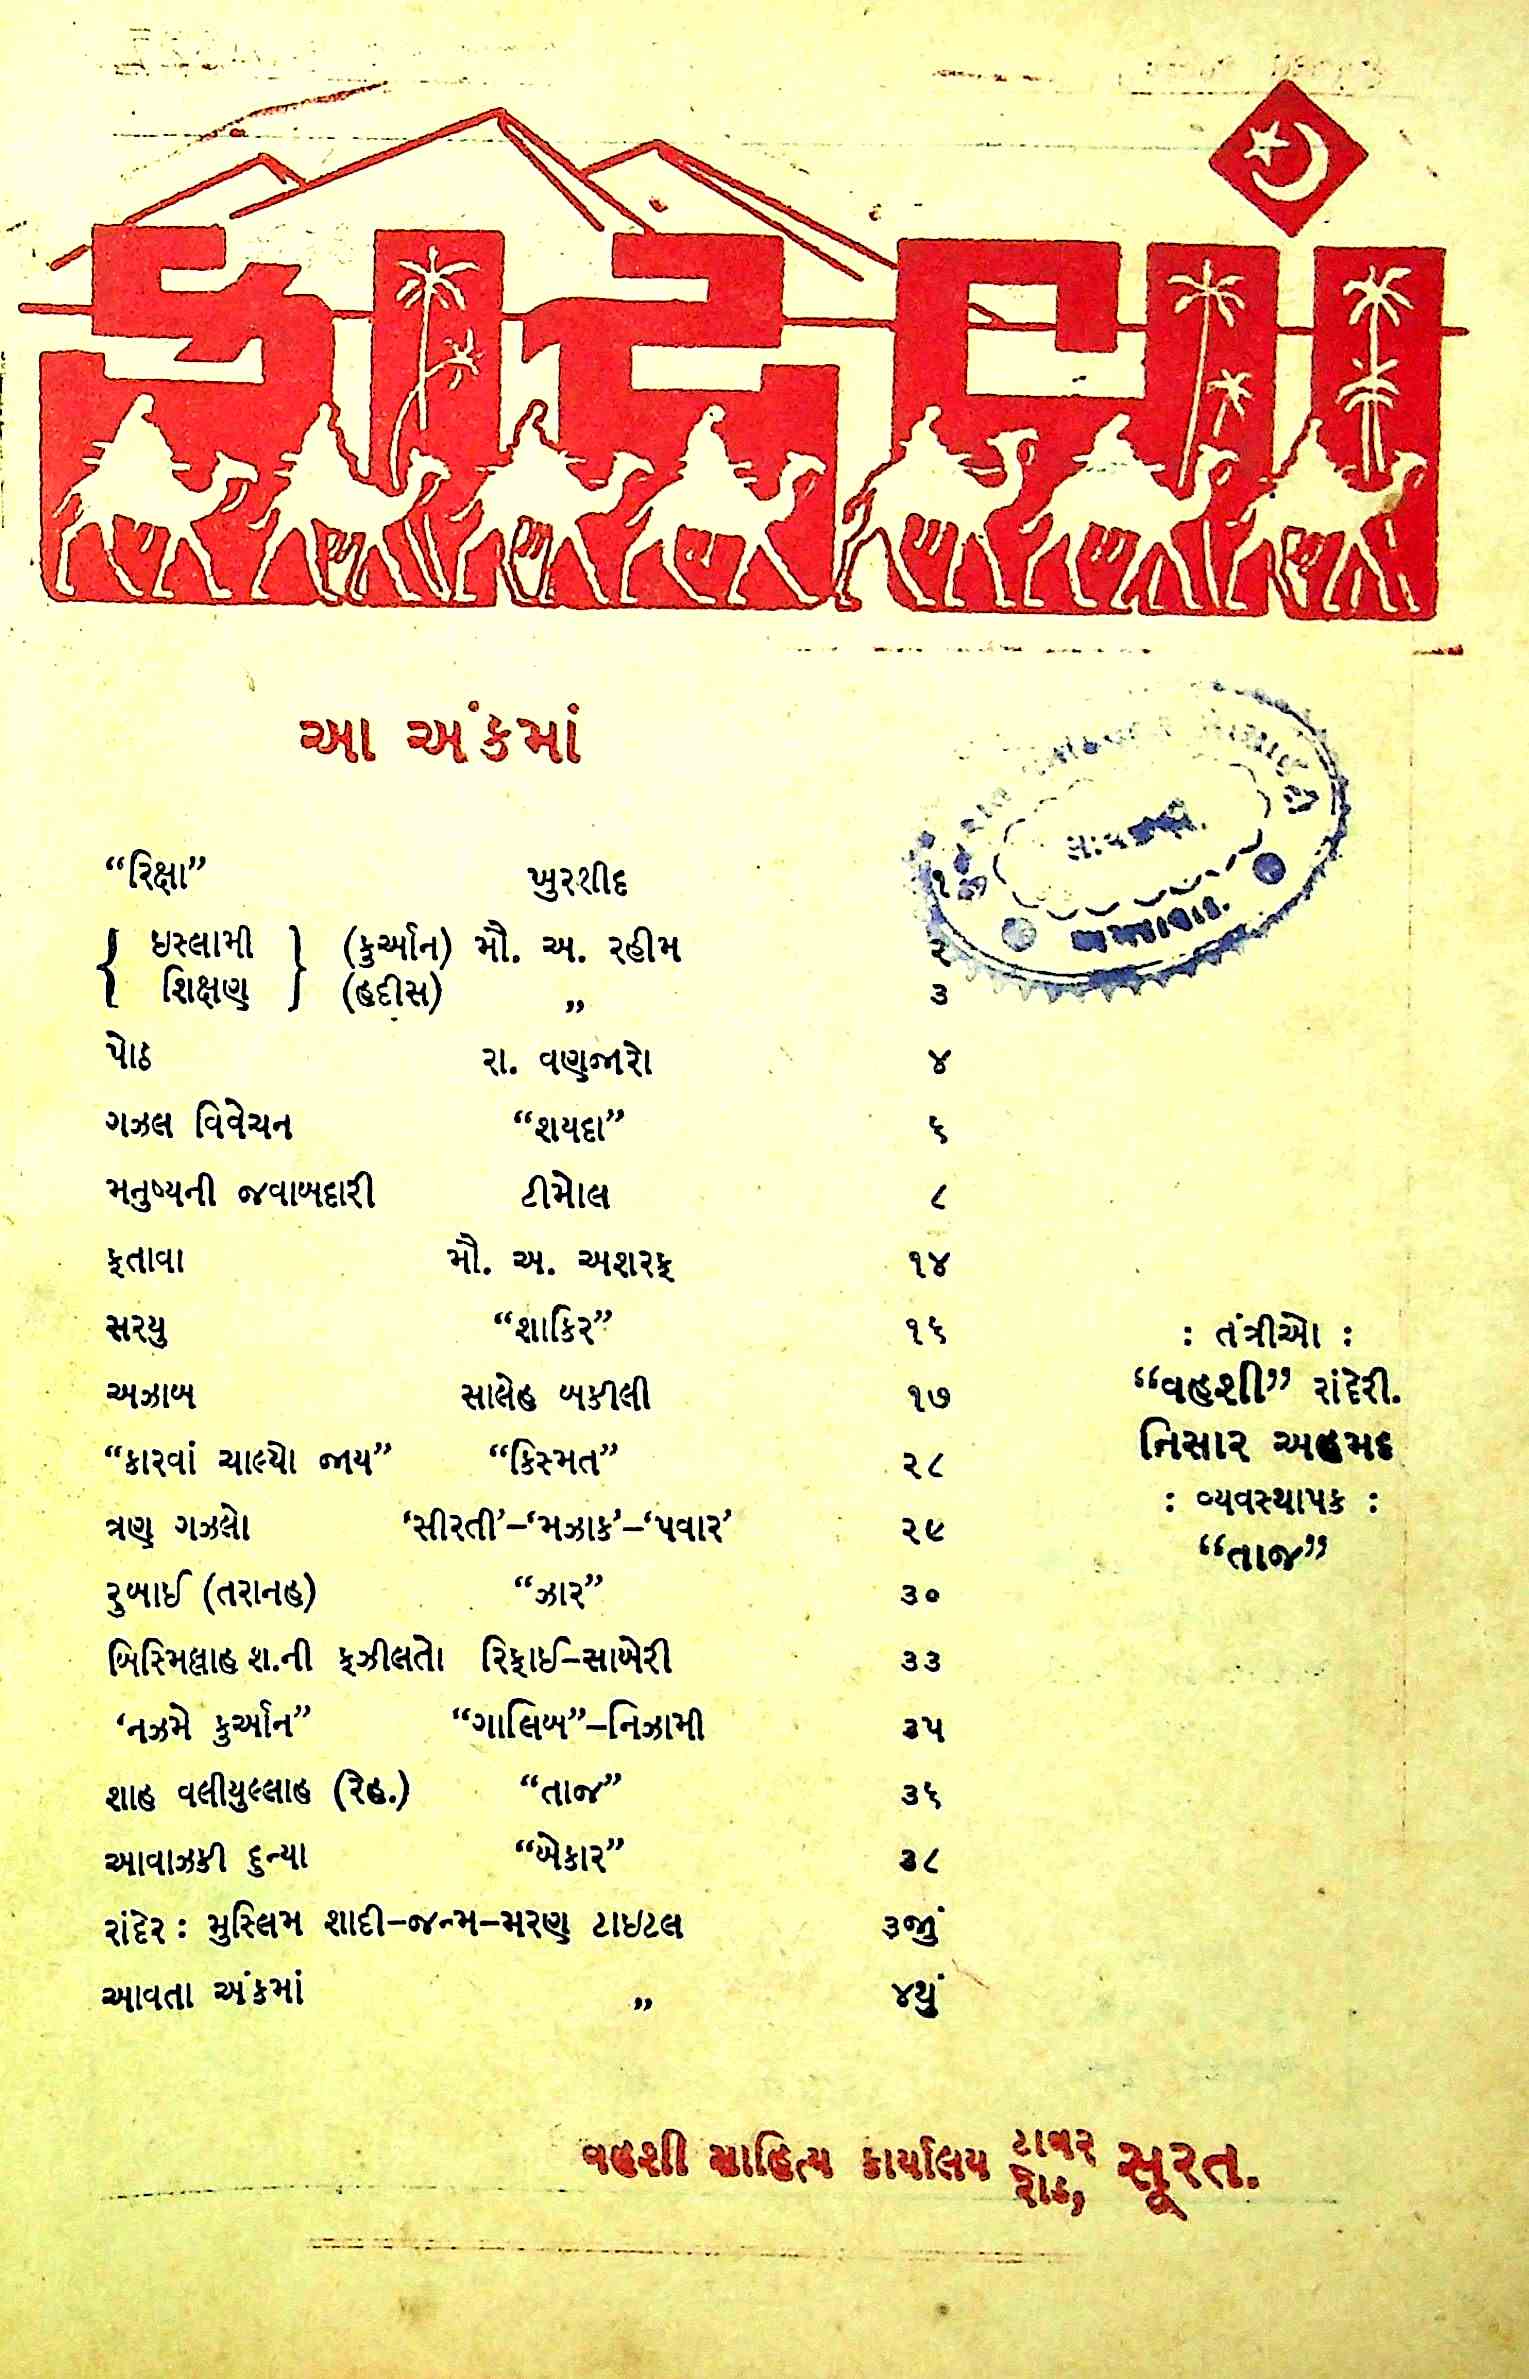 કારવાં
આ અંકમાં
“રિક્ષા” ખુરશીદ ૧
{ ઇસ્લામી } (કુર્આન) મૌ. અ. રહીમ ૨
{ શિક્ષણ } (હદીસ) „ ૩
પોઠ રા. વણજારો ૪
ગઝલ વિવેચન “શયદા” ૬
મનુષ્યની જવાબદારી ટીમોલ ૮
ફતાવા મૌ. અ. અશરફ ૧૪
સરયુ “શાકિર” ૧૬
અઝાબ સાલેહ બકીલી ૧૭
“કારવાં ચાલ્યો જાય” “કિસ્મત” ૨૮
ત્રણ ગઝલો ‘સીરતી’-‘મઝાક’-‘પવાર’ ૨૯
રુબાઈ (તરાનહ) “ઝાર” ૩૦
બિસ્મિલ્લાહ શ.ની ફઝીલતો રિફાઈ-સાખેરી ૩૩
‘નઝમે કુર્આન” “ગાલિબ”-નિઝામી ૩૫
શાહ વલીયુલ્લાહ (રેહ.) “તાજ” ૩૬
આવાઝકી દુન્યા “બેકાર” ૩૮
રાંદેર : મુસ્લિમ શાદી-જન્મ-મરણ ટાઇટલ ૩જું
આવતા અંકમાં „ ૪થું
: તંત્રીઓ :
“વહશી” રાંદેરી.
નિસાર અહમદ
: વ્યવસ્થાપક :
“તાજ”
વહશી સાહિત્ય કાર્યાલય ટાવર રોડ, સૂરત.